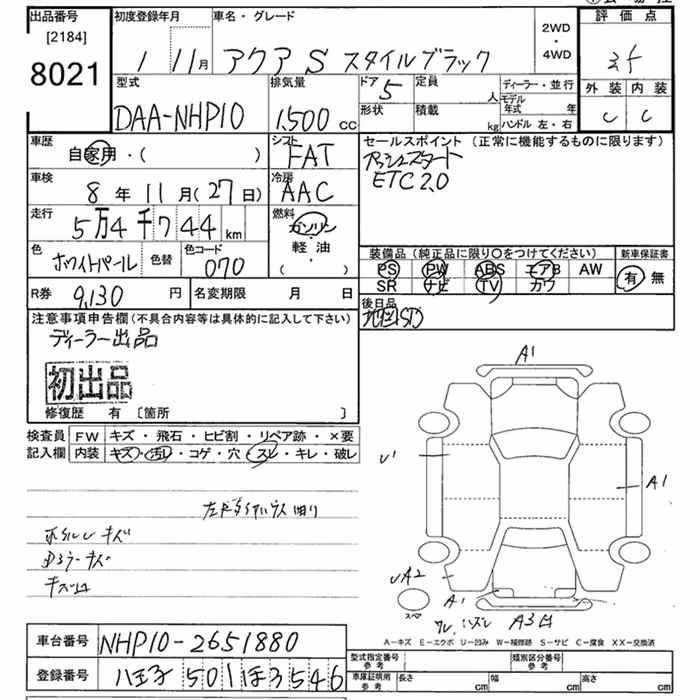 出品番号 初度登録年月 車名・グレード 2WD・4WD 評価点
[2184]
8021
1 11月 アクア S スタイルブラック
型式 排気量 ドア 5 定員 人 ディーラー・並行 外装 内装
DAA-NHP10 1,500 cc 形状 積載 kg モデル年式 年 C C
ハンドル 左・右
車歴 自家用・( ) シフト FAT セールスポイント (正常に機能するものに限ります)
プッシュスタート
車検 8年 11月(27日) 冷房 AAC ETC2.0
走行 5万4千744km 燃料 ガソリン・軽油 ( )
色 ホワイトパール 色替 色コード 070
装備品(純正品に限り〇をつけてください) 新車保証書
PS PW ABS エアB AW 有 無
SR ナビ TV カワ
R券 9,130円 名変期限 月 日
後日品
注意事項申告欄(不具合内容等は具体的に記入して下さい) 地図SD
ディーラー出品
初出品
修復歴 有 [箇所 ]
検査員記入欄 FW キズ・飛石・ヒビ割・リペア跡・×要
内装 キズ・汚レ・コゲ・穴・スレ・キレ・破レ
ホイルキズ
ドミラーキズ
A1
U1
A1
UA2
A1
スペア
A3
A-キズ E-エクボ U-凹み W-補修跡 S-サビ C-腐食 XX-交換済
車台番号 NHP10-2651880
登録番号 八王子 501 ほ 3546
型式指定番号 参考 類別区分番号 参考
車庫証明用 参考 長さ cm 幅 cm 高さ cm